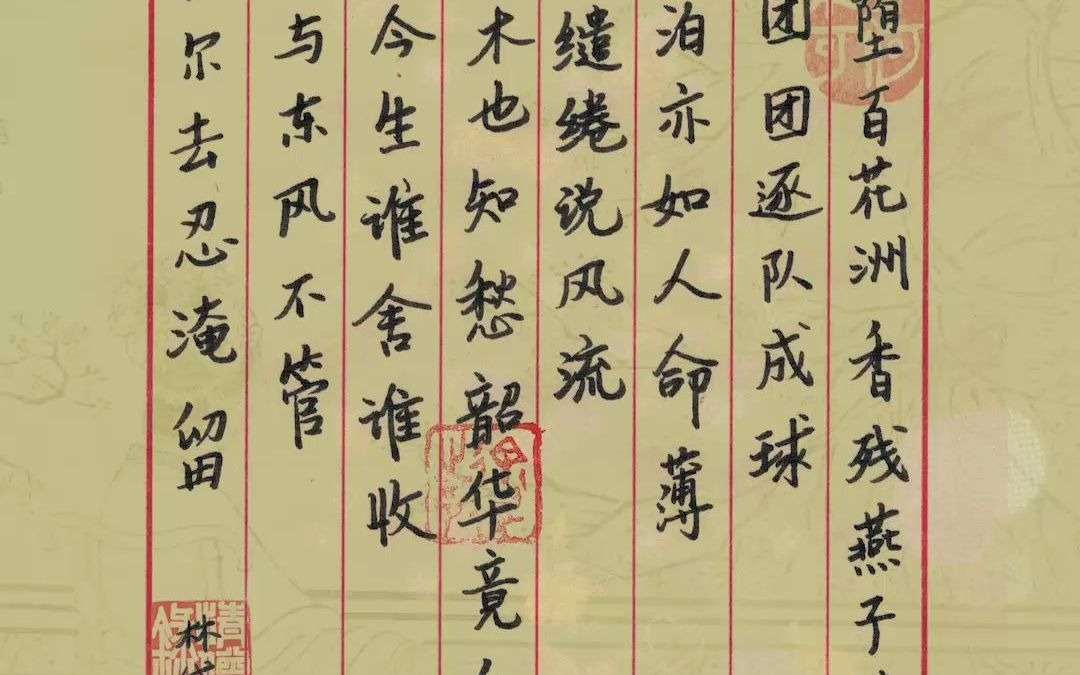 堕百花洲香残燕子
团团逐队成球
泊亦如人命薄
缱绻说风流
木也知愁韶华竟
今生谁舍谁收
与东风不管
尔去忍淹留 林